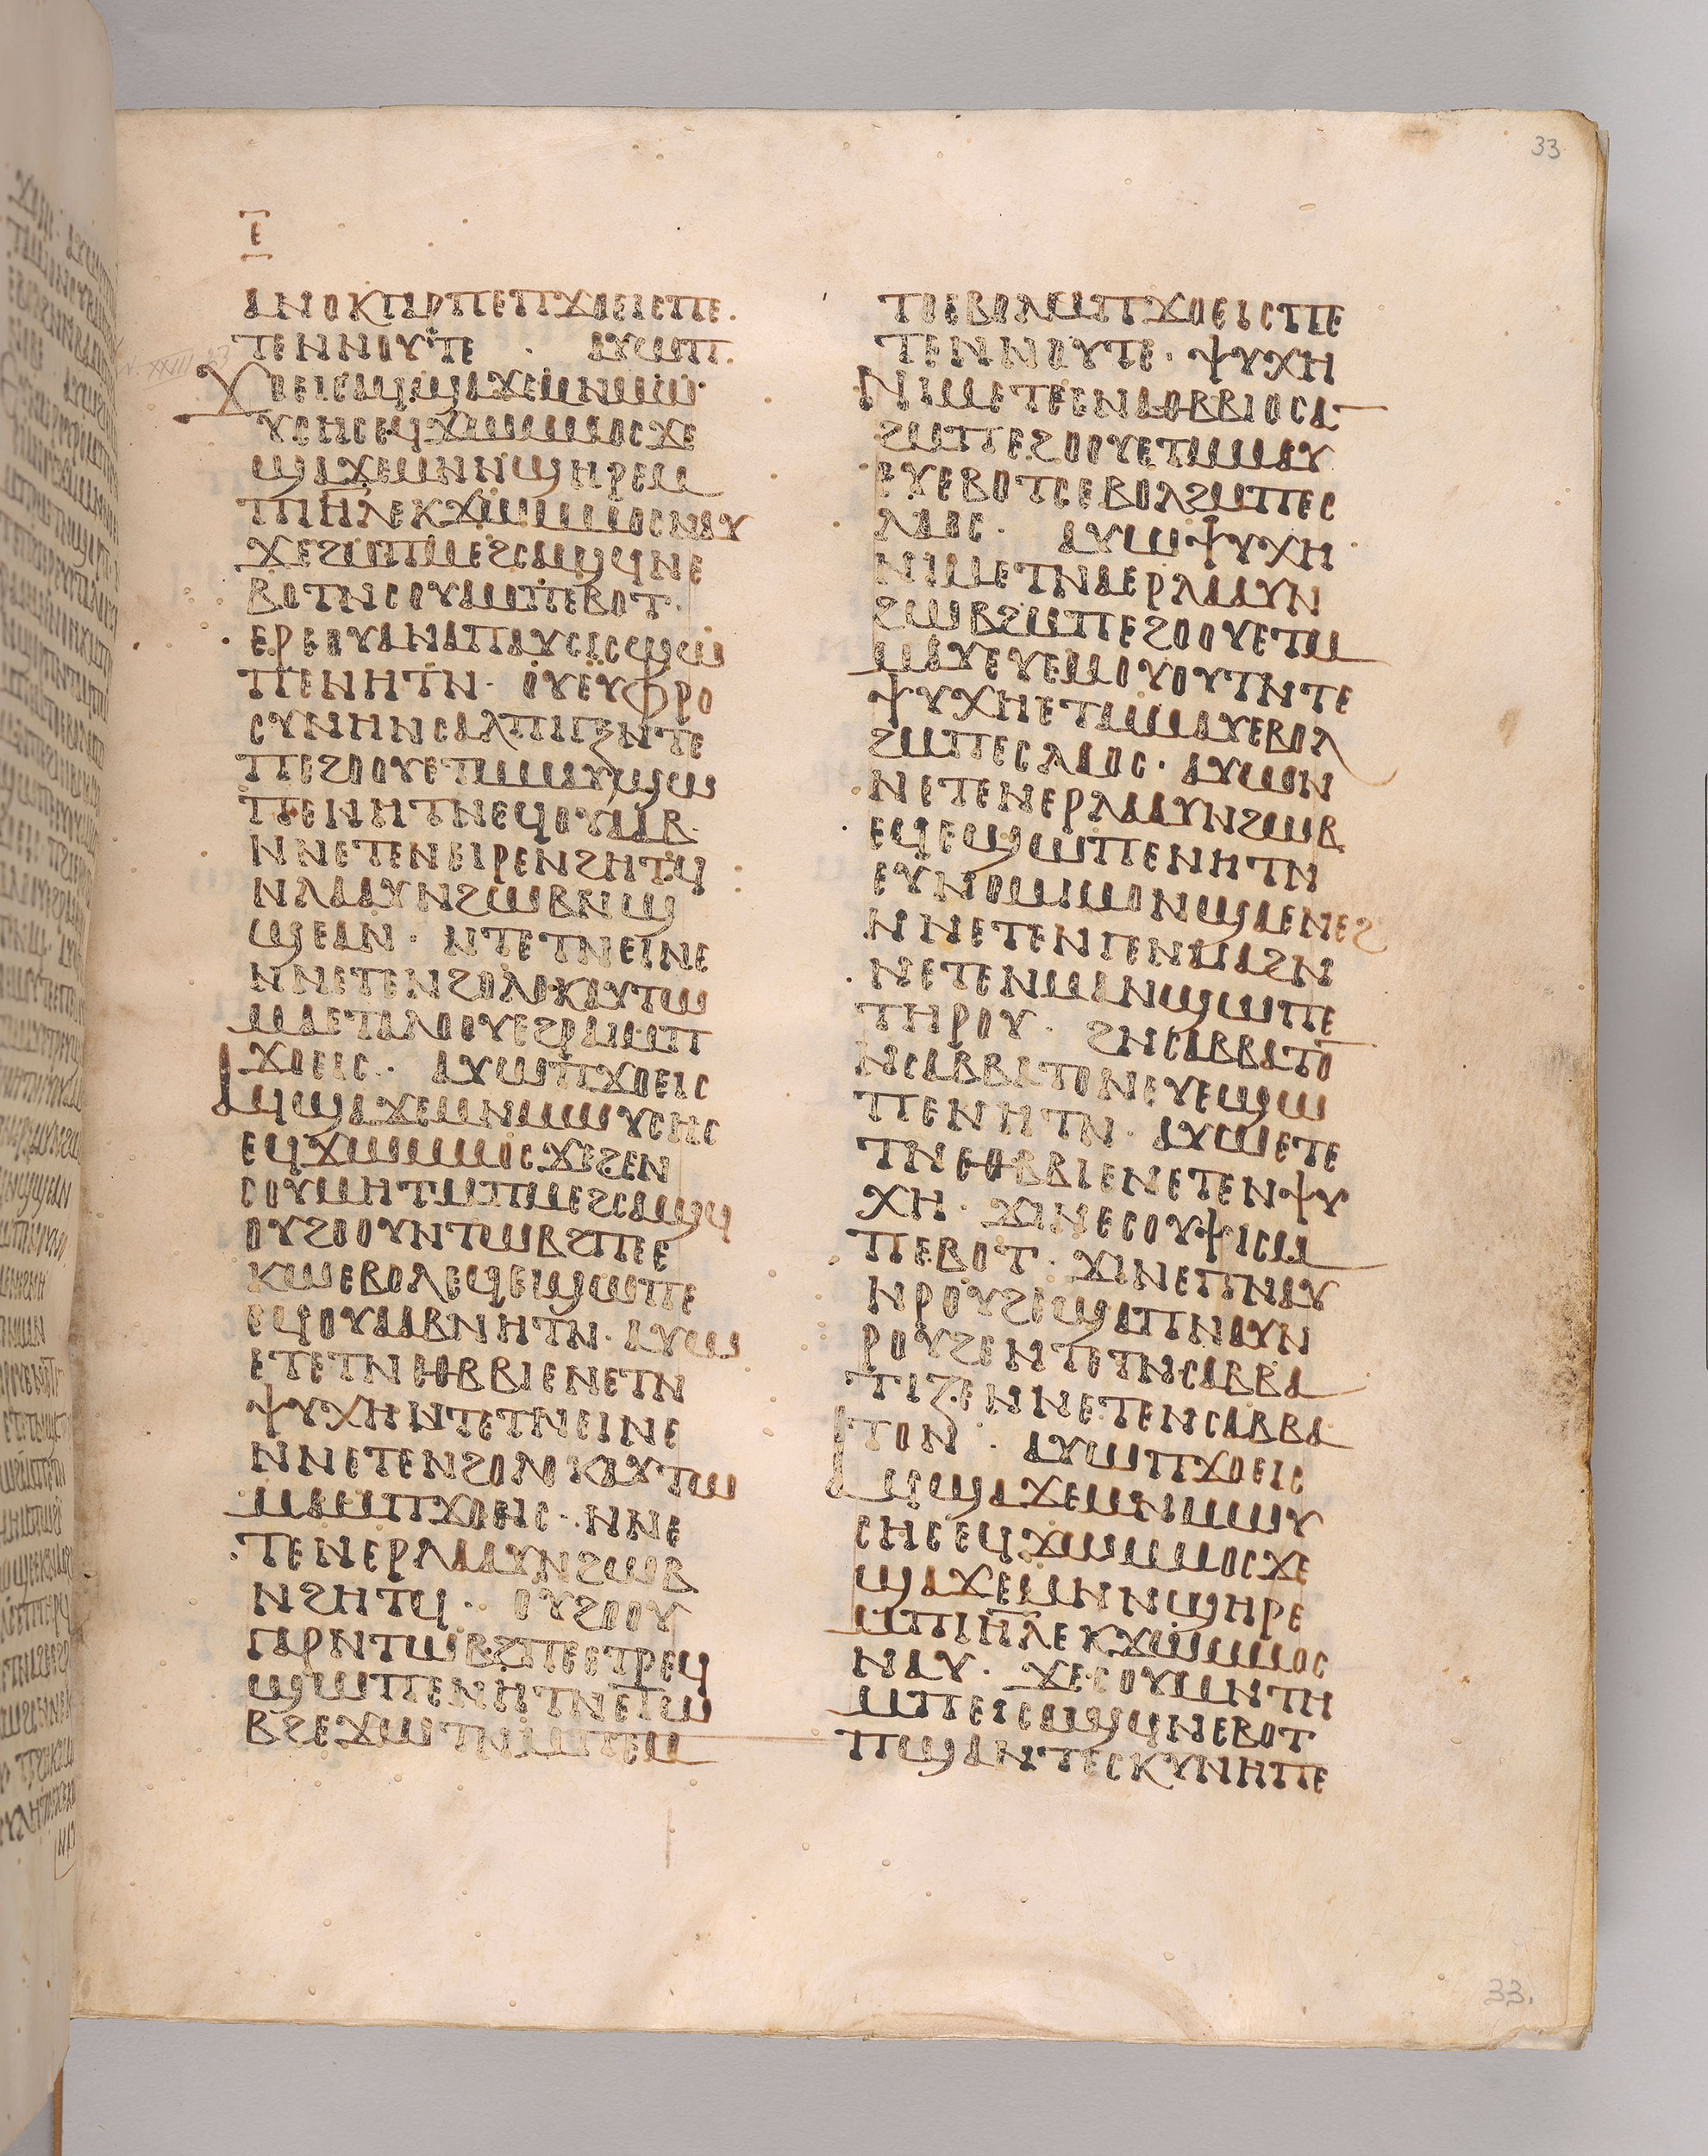 33
ⲉ
ⲁⲛⲟⲕⲅⲁⲣⲡⲉⲡϫⲟⲉⲓⲥⲡⲉ
ⲧⲉⲛⲛⲟⲩⲧⲉ · ⲁⲩⲱⲡ
ϫⲟⲉⲓⲥⲁϥϣⲁϫⲉⲙⲛⲙⲱ
ⲩⲥⲏⲥⲉϥϫⲱⲙⲙⲟⲥϫⲉ
ϣⲁϫⲉⲙⲛⲛϣⲏⲣⲉⲙ
ⲡⲓⲏ̅ⲗ̅ⲉⲕϫⲱⲙⲙⲟⲥⲛⲁⲩ
ϫⲉϩⲙⲡⲙⲉϩⲥⲁϣϥⲛⲉ
ⲃⲟⲧⲛⲥⲟⲩⲁⲙⲡⲉⲃⲟⲧ·
ⲉⲣⲉⲟⲩⲁⲛⲁⲡⲁⲩⲥⲓⲥϣⲱ
ⲡⲉⲛⲏⲧⲛ· ⲟⲩⲉⲩⲫⲣⲟ
ⲥⲩⲛⲏⲛⲥⲁⲗⲡⲓⲅⲝⲛⲧⲉ
ⲡⲉϩⲟⲟⲩⲉⲧⲙⲙⲁⲩϣⲱ
ⲡⲉⲛⲏⲧⲛⲉϥⲟⲩⲁⲁⲃ·
ⲛⲛⲉⲧⲉⲛⲉⲓⲣⲉⲛϩⲏⲧϥ
ⲛⲗⲁⲁⲩⲛϩⲱⲃⲛϣ
ϣⲉⲁⲛ· ⲛⲧⲉⲧⲛⲉⲓⲛⲉ
ⲛⲛⲉⲧⲉⲛϩⲟⲗⲟⲕⲁⲩⲧⲱ
ⲙⲁⲉⲧⲁⲗⲟⲟⲩⲉϩⲣⲁⲓⲙⲡ
ϫⲟⲉⲓⲥ· ⲁⲩⲱⲡϫⲟⲉⲓⲥ
ⲁϥϣⲁϫⲉⲙⲛⲙⲱⲩⲥⲏⲥ
ⲉϥϫⲱⲙⲙⲟⲥϫⲉϩⲉⲛ
ⲥⲟⲩⲙⲏⲧⲙⲡⲙⲉϩⲥⲁϣϥ
ⲟⲩϩⲟⲟⲩⲛⲧⲱⲃϩⲡⲉ
ⲕⲱⲉⲃⲟⲗⲉϥⲉϣⲱⲡⲉ
ⲉϥⲟⲩⲁⲁⲃⲛⲏⲧⲛ· ⲁⲩⲱ
ⲉⲧⲉⲧⲛⲉⲑⲃⲃⲓⲉⲛⲉⲧⲛ
ⲯⲩⲭⲏⲛⲧⲉⲧⲛⲉⲓⲛⲉ
ⲛⲛⲉⲧⲉⲛϩⲟⲗⲟⲕⲁⲩⲧⲱ
ⲙⲁⲙⲡϫⲟⲉⲓⲥ· ⲛⲛⲉ
ⲧⲉⲛⲉⲣⲗⲁⲁⲩⲛϩⲱⲃ
ⲛϩⲏⲧϥ· ⲟⲩϩⲟⲟⲩ
ⲅⲁⲣⲛⲧⲱⲃϩⲡⲉⲉⲧⲣⲉϥ
ϣⲱⲡⲉⲛⲏⲧⲛⲉⲧⲱ
ⲃϩⲉϫⲱⲧⲛⲙⲡⲉⲙ
ⲧⲟⲉⲃⲟⲗⲙⲡϫⲟⲉⲓⲥⲡⲉ
ⲧⲉⲛⲛⲟⲩⲧⲉ· ⲯⲩⲭⲏ
ⲛⲓⲙⲉⲧⲉⲥⲛⲁⲑⲃⲃⲓⲟⲥⲁⲛ
ϩⲙⲡⲉϩⲟⲟⲩⲉⲧⲙⲙⲁⲩ
ⲉⲩⲉⲃⲟⲧⲥⲉⲃⲟⲗϩⲙⲡⲉⲥ
ⲗⲁⲟⲥ· ⲁⲩⲱⲯⲩⲭⲏ
ⲛⲓⲙⲉⲧⲛⲁⲉⲣⲗⲁⲁⲩⲛ
ϩⲱⲃϩⲙⲡⲉϩⲟⲟⲩⲉⲧⲙ
ⲙⲁⲩⲉⲩⲉⲙⲟⲩⲟⲩⲧⲛⲧⲉ
ⲯⲩⲭⲏⲉⲧⲙⲙⲁⲩⲉⲃⲟⲗ
ϩⲙⲡⲉⲥⲗⲁⲟⲥ· ⲁⲩⲱⲟⲛ
ⲛⲉⲧⲉⲛⲉⲣⲗⲁⲁⲩⲛϩⲱⲃ
ⲉϥⲉϣⲱⲡⲉⲛⲏⲧⲛ
ⲉⲩⲛⲟⲙⲓⲙⲟⲛϣⲁⲉⲛⲉϩ
ⲛⲛⲉⲧⲉⲛⲅⲉⲛⲉⲁϩⲛ
ⲛⲉⲧⲉⲛⲙⲁⲛϣⲱⲡⲉ
ⲧⲏⲣⲟⲩ· ϩⲛⲥⲁⲃⲃⲁⲧⲟ̅
ⲛⲥⲁⲃⲃⲁⲧⲟⲛⲉⲩⲉϣⲱ
ⲡⲉⲛⲏⲧⲛ· ⲁⲩⲱⲉⲧⲉ
ⲧⲛⲉⲑⲃⲃⲓⲉⲛⲉⲧⲉⲛⲯⲩ
ⲭⲏ· ϫⲓⲛⲉⲥⲟⲩⲯⲓⲥⲙ
ⲡⲉⲃⲟⲧ· ϫⲓⲛⲉⲡⲛⲁⲩ
ⲛⲣⲟⲩϩⲉϣⲁⲡⲛⲁⲩⲛ
ⲣⲟⲩϩⲉⲛⲧⲉⲧⲛⲥⲁⲃⲃⲁ
ⲧⲓⲍⲉⲛⲛⲉⲧⲉⲛⲥⲁⲃⲃⲁ
ⲧⲟⲛ· ⲁⲩⲱⲡϫⲟⲉⲓⲥ
ⲁϥϣⲁϫⲉⲙⲛⲙⲱⲩ
ⲥⲏⲥⲉϥϫⲱⲙⲙⲟⲥϫⲉ
ϣⲁϫⲉⲙⲛⲛϣⲏⲣⲉ
ⲙⲡⲓⲏ̅ⲗ̅ⲉⲕϫⲱⲙⲙⲟⲥ
ⲛⲁⲩ· ϫⲉⲥⲟⲩⲙⲛⲧⲏ
ⲙⲡⲉⲓⲥⲁϣϥⲛⲉⲃⲟⲧ
ⲡϣⲁⲛⲧⲉⲥⲕⲩⲛⲏⲡⲉ
33.